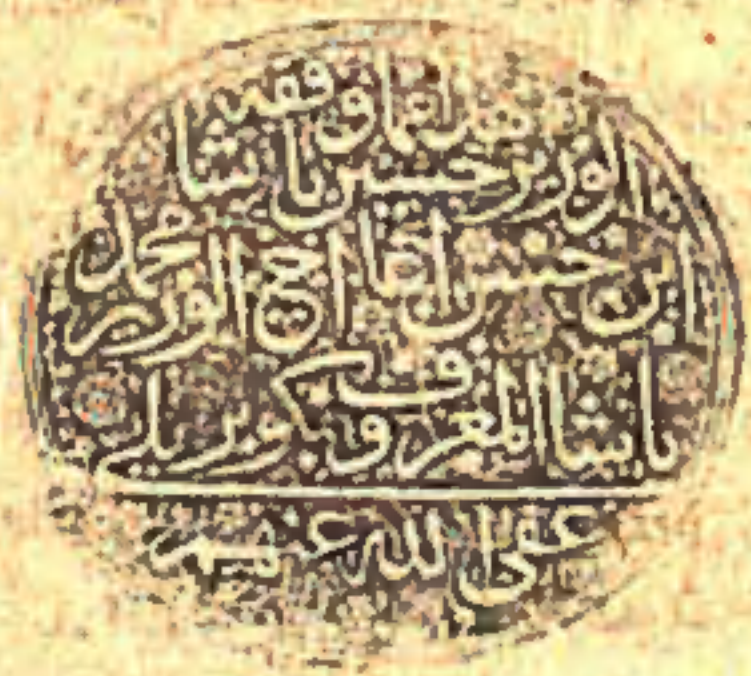 هذا مما وقفه
الوزير حسين پاشا
ابن حسن اغا اخى الوزير محمد
پاشا المعروف بكوپريلى
عفى الله عنهم